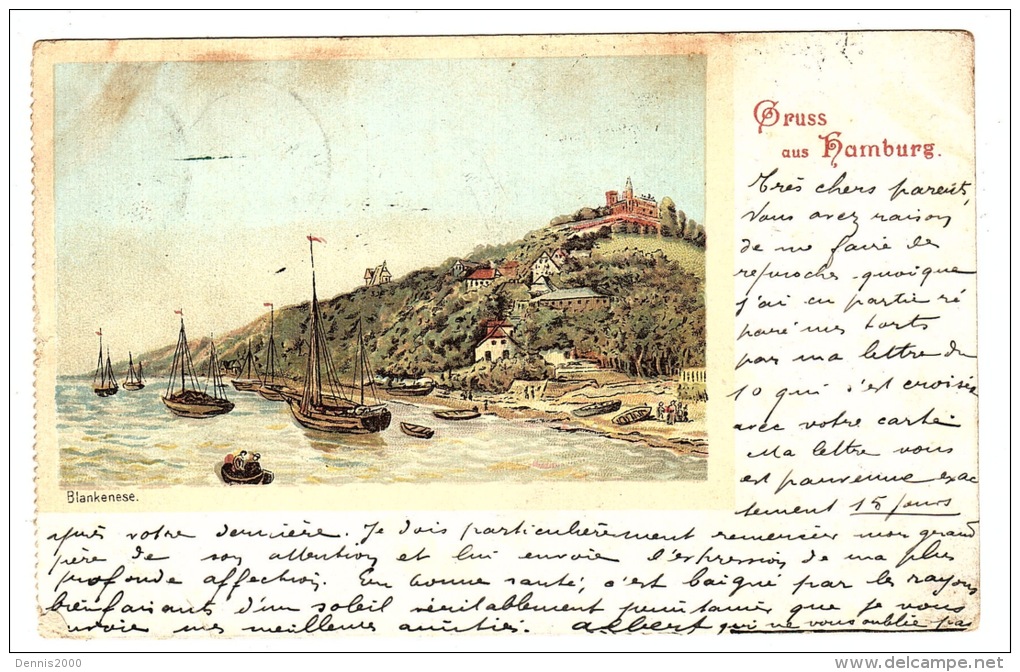 Gruss
aus Hamburg.
Très chers parents,
Vous avez raison
de me faire des
reproches quoique
j'ai en partie ré
paré mes torts
par ma lettre du
10 qui s'est croisée
avec votre carte
Ma lettre vous
est parvenue exac
tement 15 jours
Blankenese.
après votre dernière. Je dois particulièrement remercier mon grand
père de son attention et lui envoie l'expression de ma plus
profonde affection. En bonne santé, c'est baigné par les rayons
bienfaisants d'un soleil véritablement printanier que je vous
envoie mes meilleures amitiés. Albert qui ne vous oublie pas
Dennis2000
delcampe.net